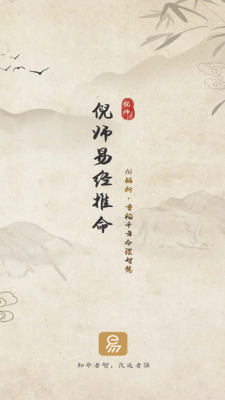 倪师易经推命
倪师
AI解析·重构千年命理智慧
易
知命者智，改运者强